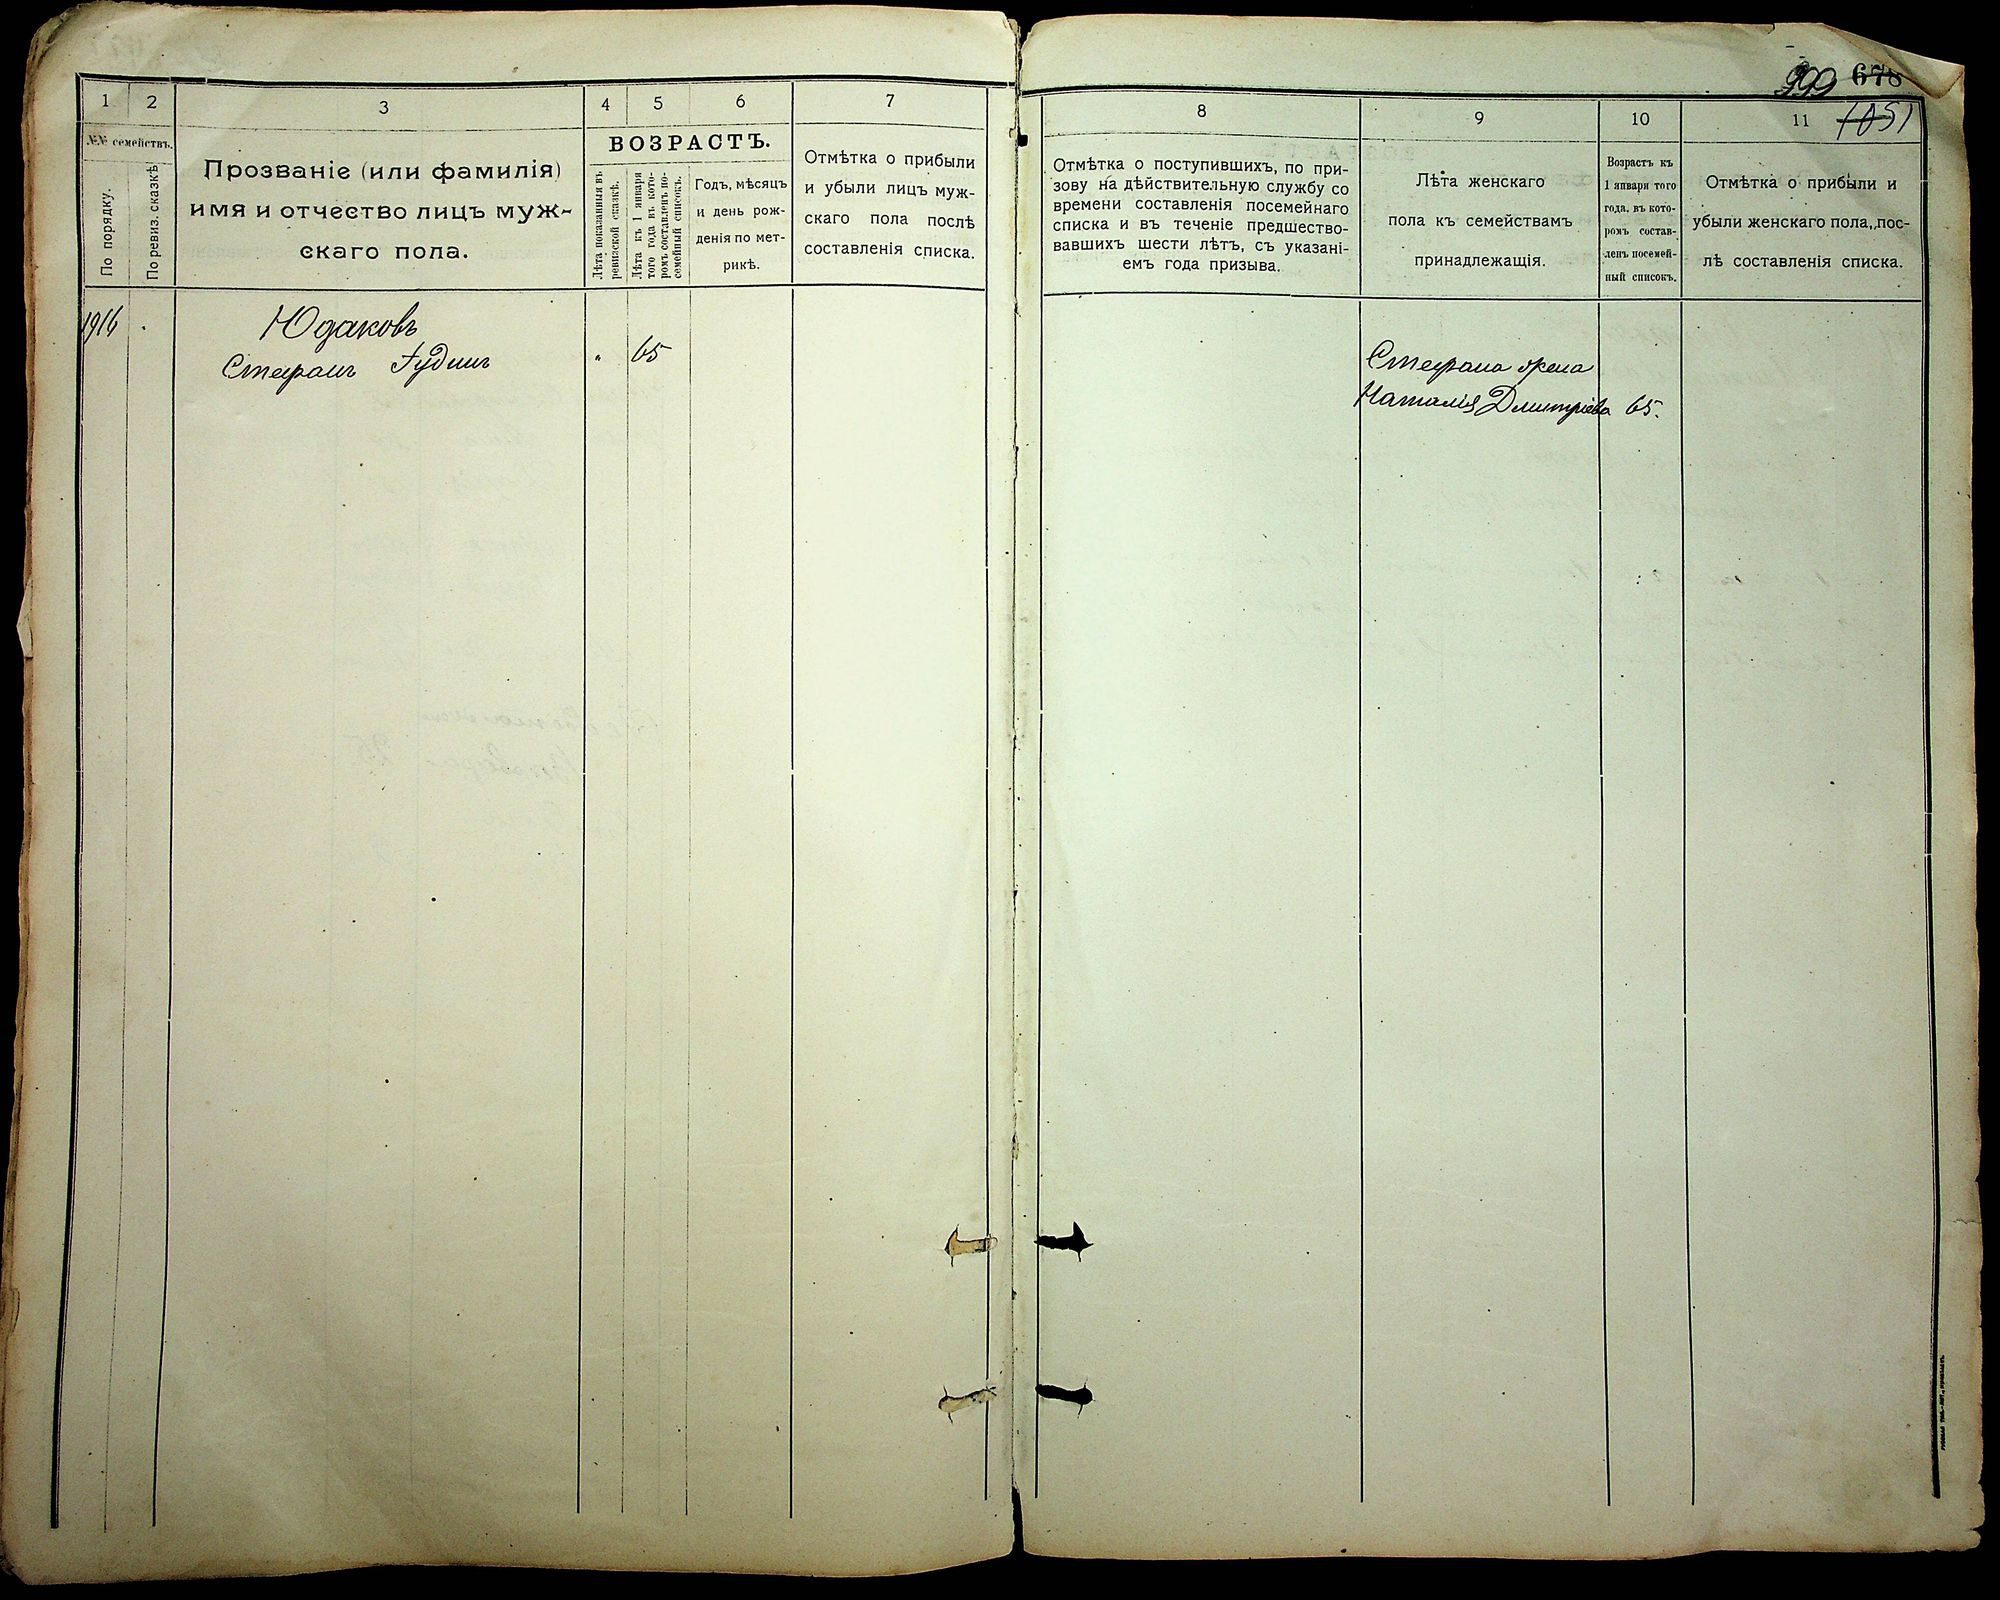 1
2
3
4
5
6
7
№№ семействъ.
По порядку.
По ревиз. сказкѣ
Прозваніе (или фамилія)
имя и отчество лицъ муж-
скаго пола.
ВОЗРАСТЪ.
Лѣта показанныя въ
ревизской сказкѣ.
Лѣта къ 1 января
того года въ кото-
ромъ составленъ по-
семейный списокъ.
Годъ, мѣсяцъ
и день рож-
денія по мет-
рикѣ.
Отмѣтка о прибыли
и убыли лицъ муж-
скаго пола послѣ
составленія списка.
1914
Юдаковъ
Стефанъ Іудинъ
" 65
999 678
1051
8
9
10
11
Отмѣтка о поступившихъ, по при-
зову на дѣйствительную службу со
времени составленія посемейнаго
списка и въ теченіе предшество-
вавшихъ шести лѣтъ, съ указані-
емъ года призыва.
Лѣта женскаго
пола къ семействамъ
принадлежащія.
Возрастъ къ
1 января того
года, въ кото-
ромъ состав-
ленъ посемей-
ный списокъ.
Отмѣтка о прибыли и
убыли женскаго пола, пос-
лѣ составленія списка.
Стефана жена
Наталія Дмитріева 65.